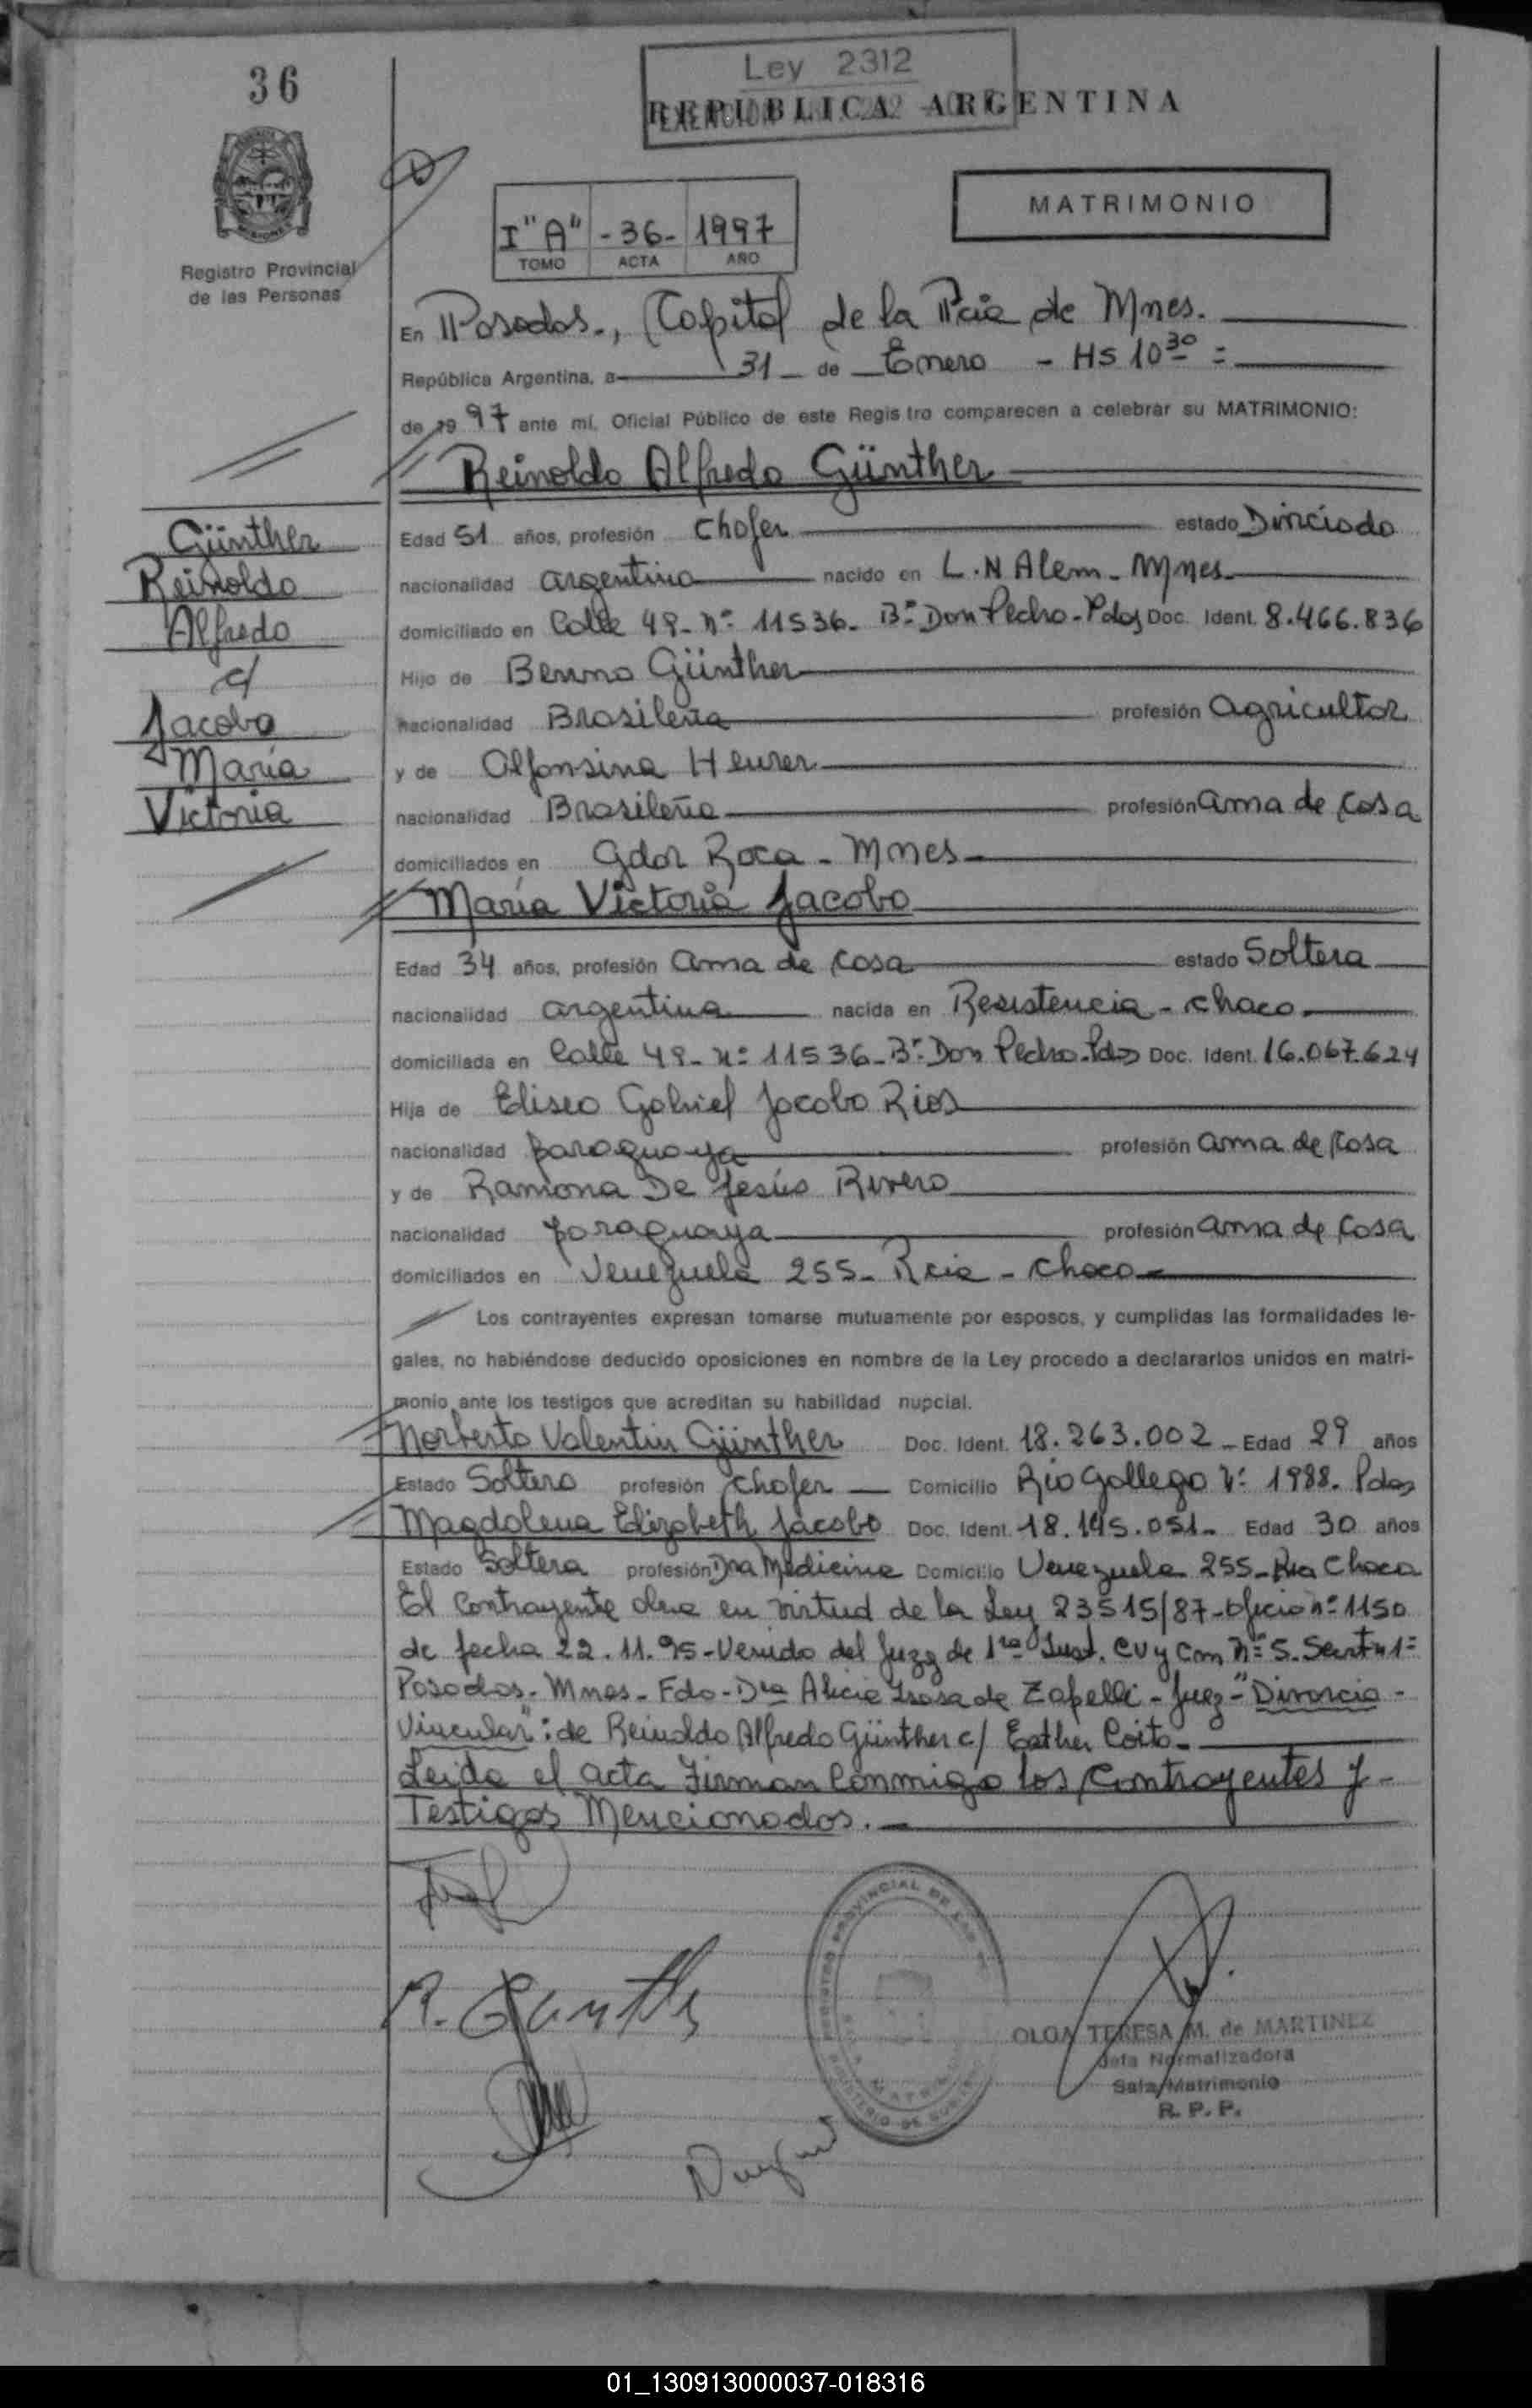 36
Ley 2312
REPUBLICA ARGENTINA
MATRIMONIO
I "A" - 36 - 1997
TOMO ACTA AÑO
Registro Provincial
de las Personas
En Posadas., Capital de la Pcia de Mnes.
República Argentina, a 31 de Enero - HS 10 30 =
de 1997 ante mí, Oficial Público de este Registro comparecen a celebrar su MATRIMONIO:
Reinoldo Alfredo Günther
Günther
Reinoldo
Alfredo
c/
Jacobo
María
Victoria
Edad 51 años, profesión Chofer estado Divorciado
nacionalidad argentina nacido en L.N Alem - Mnes
domiciliado en Calle 49 - nº 11536 - Bº Don Pedro - Pdas Doc. Ident. 8.466.836
Hijo de Benno Günther
nacionalidad Brasileña profesión agricultor
y de Alfonsina Heurer
nacionalidad Brasileña profesión ama de casa
domiciliados en Gdor Roca - Mnes -
María Victoria Jacobo
Edad 34 años, profesión ama de casa estado Soltera
nacionalidad argentina nacida en Resistencia - Chaco.
domiciliada en Calle 49 - nº 11536 - Bº Don Pedro - Pdas Doc. Ident. 16.067.624
Hija de Eliseo Gabriel Jacobo Rios
nacionalidad paraguaya profesión ama de casa
y de Ramona De Jesús Rivero
nacionalidad paraguaya profesión ama de casa
domiciliados en Venezuela 255 - Rcia - Chaco -
Los contrayentes expresan tomarse mutuamente por esposos, y cumplidas las formalidades le-
gales, no habiéndose deducido oposiciones en nombre de la Ley procedo a declararlos unidos en matri-
monio ante los testigos que acreditan su habilidad nupcial.
Norberto Valentin Günther Doc. Ident. 18.263.002 - Edad 29 años
Estado Soltero profesión Chofer Domicilio Rio Gallego Nº 1988. Pdas
Magdalena Elizabeth Jacobo Doc. Ident. 18.145.051 - Edad 30 años
Estado Soltera profesión Dra Medicina Domicilio Venezuela 255 - Rcia Chaco
El Contrayente en virtud de la Ley 23515/87 - Oficio nº 1150
de fecha 22.11.95 - Venido del Juzg de 1ra Inst. CV y Com Nº 5. nº 1
Posadas - Mnes - Fdo - Dra Alicia de Zapelli - Juez - "Divorcio -
Vincular": de Reinoldo Alfredo Günther c/ Esther Coito -
Leida el acta Firman Conmigo los Contrayentes y -
Testigos Mencionados. -
R. Gunther
OLGA TERESA M. de MARTINEZ
Jefa Normalizadora
Sala Matrimonio
R. P. P.
01_130913000037-018316